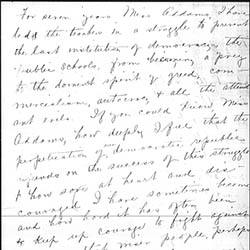 For seven years, Miss Addams, I have
led the teachers in a struggle to prevent
the last institution of democracy, the
public schools, from becoming a prey
to the dominant spirit of greed, com
mercialism, autocracy & all the attend
ant evils. If you could know Miss
Addams, how deeply I feel that the
perpetuation of a democratic republic
depends on the success of this struggle
& how sore at heart and dis-
couraged I have sometimes become
and how hard it has often been
to keep up courage to fight against
most people, perhaps